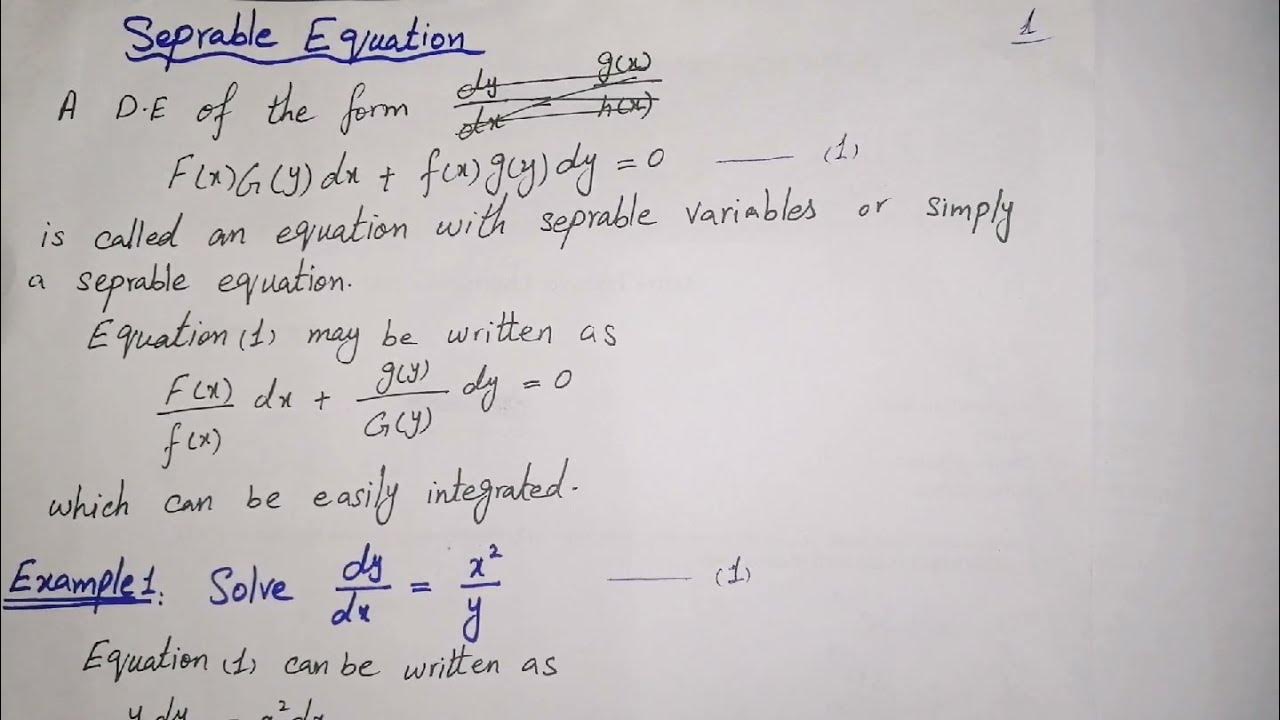 Seprable Equation
1
A D.E of the form dy/dx g(x)/h(x)
F(x)G(y)dx + f(x)g(y)dy = 0 —— (1)
is called an equation with seprable variables or simply
a seprable equation.
Equation (1) may be written as
F(x)/f(x) dx + g(y)/G(y) dy = 0
which can be easily integrated.
Example 1: Solve dy/dx = x²/y —— (1)
Equation (1) can be written as
y dy = x² dx